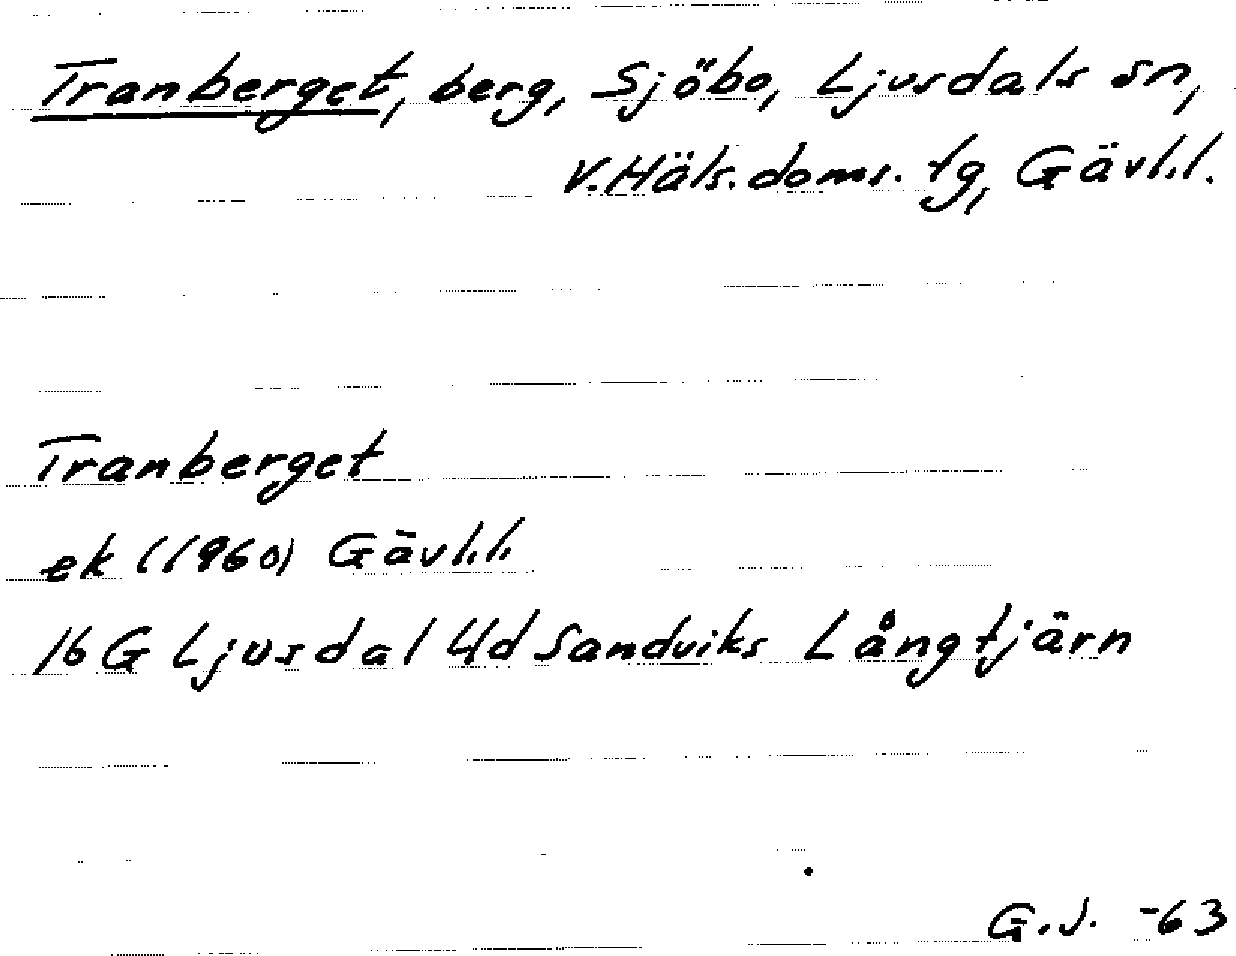 Tranberget, berg, Sjöbo, Ljusdals sn,
V.Häls.doms.tg, Gävl.l.
Tranberget
ek (1960) Gävl.l.
16G Ljusdal 4d Sandviks Långtjärn
G.J. -63